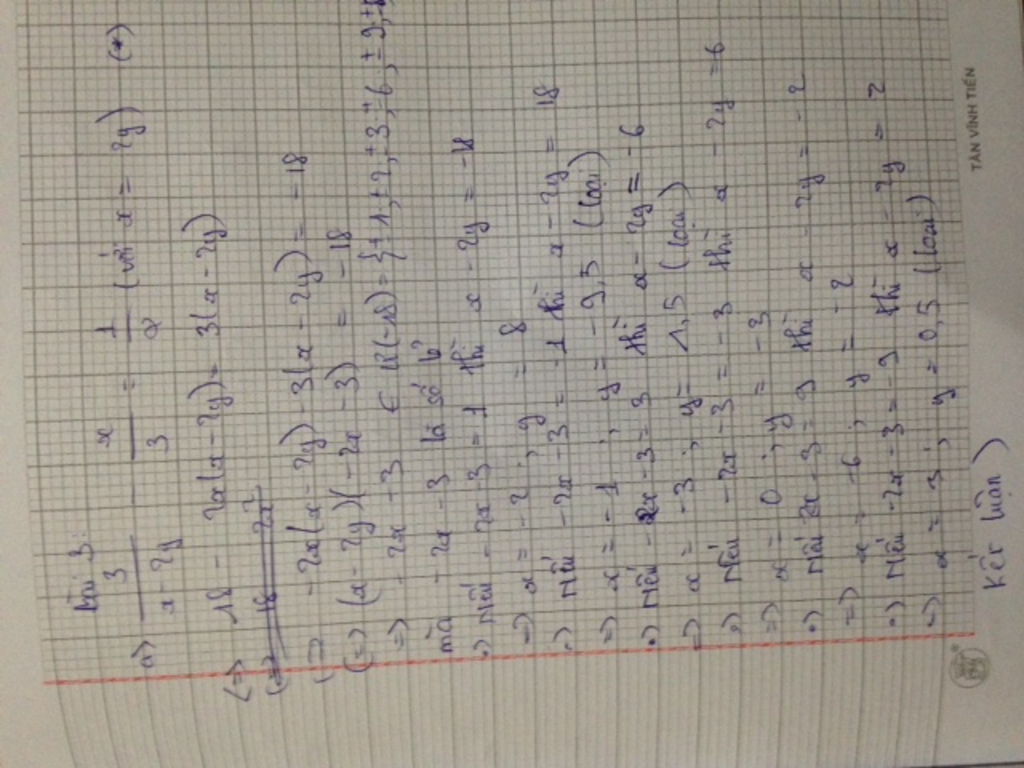 Bài 3:
a) 3/(x - 2y) - x/3 = 1/2 (với x = 2y) (*)
<=> 18 - 2x(x - 2y) = 3(x - 2y)
<=> 18 2x²
<=> - 2x(x - 2y) - 3(x - 2y) = - 18
<=> (x - 2y)(- 2x - 3) = - 18
=> - 2x - 3 ∈ Ư(-18) = {± 1, ± 2, ± 3, ± 6, ± 9, ±
mà - 2x - 3 là số lẻ
•) Nếu - 2x - 3 = 1 thì x - 2y = - 18
=> x = - 2 ; y = 8
•) Nếu - 2x - 3 = - 1 thì x - 2y = 18
=> x = - 1 ; y = - 9,5 (loại)
•) Nếu - 2x - 3 = 3 thì x - 2y = - 6
=> x = - 3 ; y = 1,5 (loại)
•) Nếu - 2x - 3 = - 3 thì x - 2y = 6
=> x = 0 ; y = - 3
•) Nếu 2x - 3 = 9 thì x - 2y = - 2
=> x = - 6 ; y = - 2
•) Nếu - 2x - 3 = - 9 thì x - 2y = 2
=> x = 3 ; y = 0,5 (loại)
Kết luận )
TÂN VĨNH TIẾN